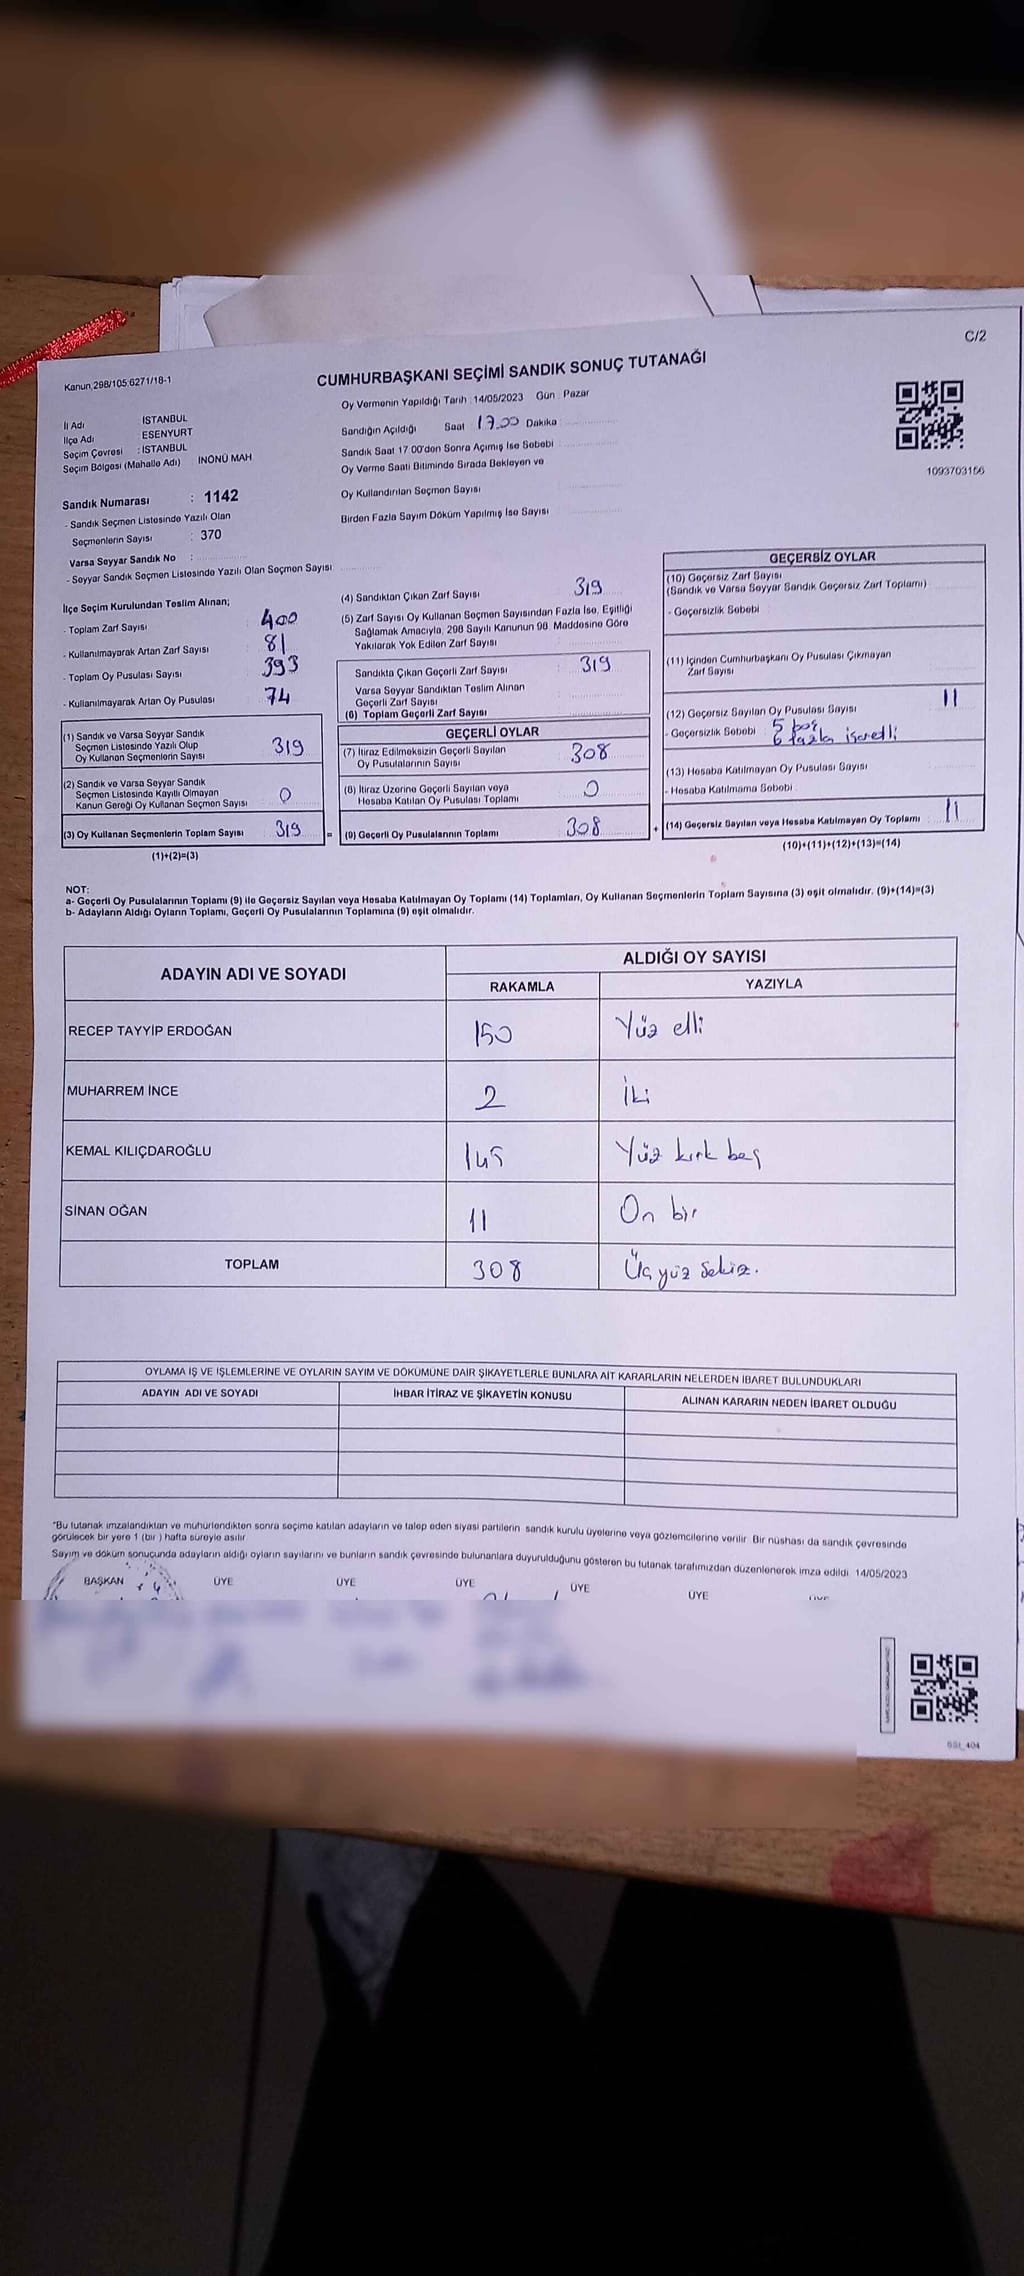 C/2
Kanun 298/105,6271/18-1
CUMHURBAŞKANI SEÇİMİ SANDIK SONUÇ TUTANAĞI
İl Adı İSTANBUL
İlçe Adı ESENYURT
Seçim Çevresi : İSTANBUL
Seçim Bölgesi (Mahalle Adı) İNONÜ MAH
Sandık Numarası : 1142
- Sandık Seçmen Listesinde Yazılı Olan
Seçmenlerin Sayısı : 370
Varsa Seyyar Sandık No :
- Seyyar Sandık Seçmen Listesinde Yazılı Olan Seçmen Sayısı
Oy Vermenin Yapıldığı Tarih : 14/05/2023 Gün : Pazar
Sandığın Açıldığı Saat 17.00 Dakika
Sandık Saat 17 00'den Sonra Açımış İse Sebebi
Oy Verme Saati Bitiminde Sırada Bekleyen ve
Oy Kullandırılan Seçmen Sayısı
Birden Fazla Sayım Döküm Yapılmış İse Sayısı
1093703156
İlçe Seçim Kurulundan Teslim Alınan;
- Toplam Zarf Sayısı 400
- Kullanılmayarak Artan Zarf Sayısı 81
- Toplam Oy Pusulası Sayısı 393
- Kullanılmayarak Artan Oy Pusulası 74
(1) Sandık ve Varsa Seyyar Sandık
Seçmen Listesinde Yazılı Olup
Oy Kullanan Seçmenlerin Sayısı 319
(2) Sandık ve Varsa Seyyar Sandık
Seçmen Listesinde Kayıtlı Olmayan
Kanun Gereği Oy Kullanan Seçmen Sayısı 0
(3) Oy Kullanan Seçmenlerin Toplam Sayısı 319 =
(1)+(2)=(3)
(4) Sandıktan Çıkan Zarf Sayısı 319
(5) Zarf Sayısı Oy Kullanan Seçmen Sayısından Fazla İse, Eşitliği
Sağlamak Amacıyla, 298 Sayılı Kanunun 98. Maddesine Göre
Yakılarak Yok Edilen Zarf Sayısı
Sandıkta Çıkan Geçerli Zarf Sayısı 319
Varsa Seyyar Sandıktan Teslim Alınan
Geçerli Zarf Sayısı
(6) Toplam Geçerli Zarf Sayısı
GEÇERLİ OYLAR
(7) İtiraz Edilmeksizin Geçerli Sayılan
Oy Pusulalarının Sayısı 308
(8) İtiraz Üzerine Geçerli Sayılan veya
Hesaba Katılan Oy Pusulası Toplamı 0
(9) Geçerli Oy Pusulalarının Toplamı 308 +
GEÇERSİZ OYLAR
(10) Geçersiz Zarf Sayısı
(Sandık ve Varsa Seyyar Sandık Geçersiz Zarf Toplamı)
- Geçersizlik Sebebi
(11) İçinden Cumhurbaşkanı Oy Pusulası Çıkmayan
Zarf Sayısı
(12) Geçersiz Sayılan Oy Pusulası Sayısı 11
- Geçersizlik Sebebi : 5 boş
6 fazla işaretli
(13) Hesaba Katılmayan Oy Pusulası Sayısı
- Hesaba Katılmama Sebebi
(14) Geçersiz Sayılan veya Hesaba Katılmayan Oy Toplamı 11
(10)+(11)+(12)+(13)=(14)
NOT:
a- Geçerli Oy Pusulalarının Toplamı (9) ile Geçersiz Sayılan veya Hesaba Katılmayan Oy Toplamı (14) Toplamları, Oy Kullanan Seçmenlerin Toplam Sayısına (3) eşit olmalıdır. (9)+(14)=(3)
b- Adayların Aldığı Oyların Toplamı, Geçerli Oy Pusulalarının Toplamına (9) eşit olmalıdır.
ADAYIN ADI VE SOYADI
ALDIĞI OY SAYISI
RAKAMLA YAZIYLA
RECEP TAYYİP ERDOĞAN 150 Yüz elli
MUHARREM İNCE 2 İki
KEMAL KILIÇDAROĞLU 145 Yüz kırk beş
SİNAN OĞAN 11 On bir
TOPLAM 308 Üç yüz Sekiz.
OYLAMA İŞ VE İŞLEMLERİNE VE OYLARIN SAYIM VE DÖKÜMÜNE DAİR ŞİKAYETLERLE BUNLARA AİT KARARLARIN NELERDEN İBARET BULUNDUKLARI
ADAYIN ADI VE SOYADI İHBAR İTİRAZ VE ŞİKAYETİN KONUSU ALINAN KARARIN NEDEN İBARET OLDUĞU
*Bu tutanak imzalandıktan ve mühürlendikten sonra seçime katılan adayların ve talep eden siyasi partilerin sandık kurulu üyelerine veya gözlemcilerine verilir Bir nüshası da sandık çevresinde
görülecek bir yere 1 (bir ) hafta süreyle asılır
Sayım ve döküm sonucunda adayların aldığı oyların sayılarını ve bunların sandık çevresinde bulunanlara duyurulduğunu gösteren bu tutanak tarafımızdan düzenlenerek imza edildi 14/05/2023
BAŞKAN ÜYE ÜYE ÜYE ÜYE ÜYE ÜYE